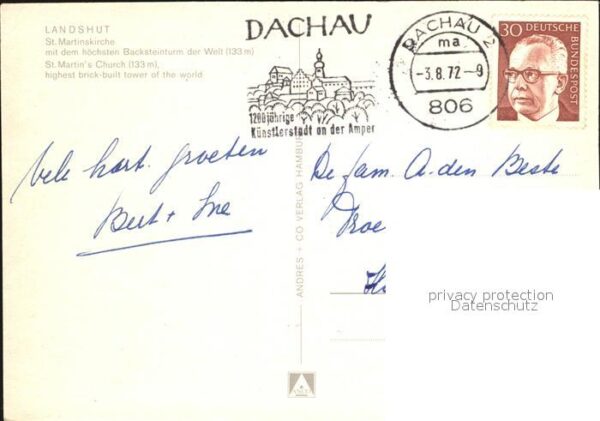 LANDSHUT
St. Martinskirche
mit dem höchsten Backsteinturm der Welt (133 m)
St. Martin's Church (133 m),
highest brick-built tower of the world
DACHAU
1200jährige
Künstlerstadt an der Amper
DACHAU 2
ma
-3.8.72-9
806
30 DEUTSCHE BUNDESPOST
vele hart. groeten
Bert + Ine
De fam. A. den Beste
ANDRES + CO VERLAG HAMBURG
privacy protection
Datenschutz